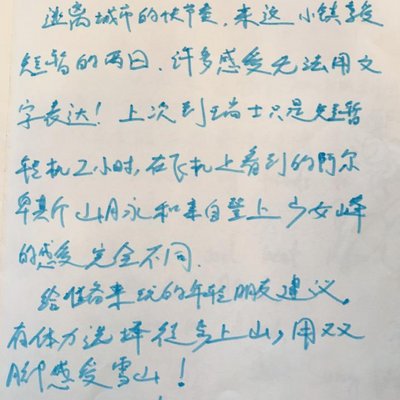 逃离城市的快节奏,来这小镇享受
短暂的两日.许多感受无法用文
字表达!上次到瑞士只是短暂
转机2小时,在飞机上看到的阿尔
卑斯山脉和亲自登上少女峰
的感受完全不同.
给准备来玩的年轻朋友建议,
有体力选择徒步上山,用双
脚感受雪山!